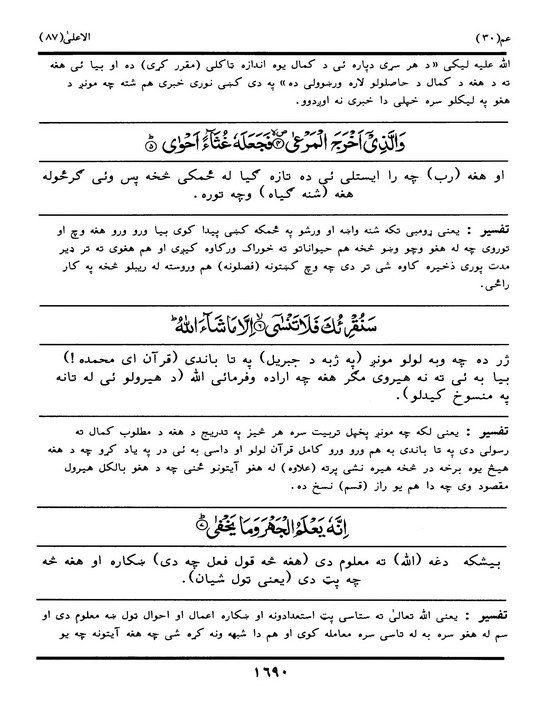 عم(٣٠)
الاعلىٰ(٨٧)
الله علیه لیکي «د هر سړي دپاره ئی د کمال یوه اندازه تاکلی (مقرر کړی) ده او بیا ئی هغه
ته د هغه د کمال د حاصلولو لاره ورښوولی ده» په دی کښی نوری خبری هم شته چه مونږ د
هغو په لیکلو سره خپلی دا خبری نه اوږدوو.
وَالَّذِیْٓ اَخْرَجَ الْمَرْعٰی ۪ۙ﴿۴﴾ فَجَعَلَهٗ غُثَآءً اَحْوٰی ؕ﴿۵﴾
او هغه (رب) چه را ایستلی ئی ده تازه ګیا له ځمکی څخه پس وئی ګرځوله
هغه (شنه ګیاه) وچه توره.
تفسیر : یعنی ړومبی تکه شنه واښه او ورشو په ځمکه کښی پیدا کوی بیا ورو ورو هغه وچ او
توروی چه له هغو وچو وښو څخه هم حیواناتو ته خوراک ورکاوه کیږی او هم هغوی ته تر ډیر
مدت پوری ذخیره کاوه شی تر دی چه وچ کښتونه (فصلونه) هم وروسته له ریبلو څخه په کار
راځي.
سَنُقْرِئُكَ فَلَا تَنْسٰۤی ۙ﴿۶﴾ اِلَّا مَا شَآءَ اللّٰهُ ؕ
ژر ده چه وبه لولو مونږ (په ژبه د جبریل) په تا باندی (قرآن ای محمده!)
بیا به ئی ته نه هیروی مګر هغه چه اراده وفرمائی الله (د هیرولو ئی له تانه
په منسوخ کیدلو).
تفسیر : یعنی لکه چه مونږ پخپل تربیت سره هر څیز په تدریج د هغه د مطلوب کمال ته
رسولی دی په تا باندی به هم ورو ورو کامل قرآن لولو او داسی به ئی در په یاد کړو چه د هغه
هیڅ یوه برخه در څخه هیره نشی پرته (علاوه) له هغو آیتونو ځنی چه د هغو بالکل هیرول
مقصود وی چه دا هم یو راز (قسم) نسخ ده.
اِنَّهٗ یَعْلَمُ الْجَهْرَ وَمَا یَخْفٰی ؕ﴿۷﴾
بیشکه دغه (الله) ته معلوم دی (هغه څه قول فعل چه دی) ښکاره او هغه څه
چه پټ دی (یعنی ټول شیان).
تفسیر : یعنی الله تعالیٰ ته ستاسی پټ استعدادونه او ښکاره اعمال او احوال ټول ښه معلوم دی او
سم له هغو سره به له تاسی سره معامله کوی او هم دا شبهه ونه کړه شی چه هغه آیتونه چه یو
١٦٩٠